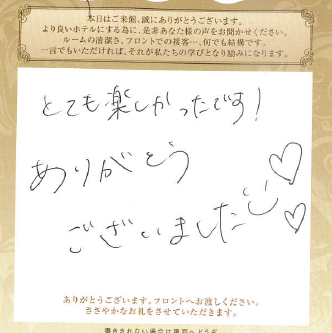 本日はご来館、誠にありがとうございます。
より良いホテルにする為に、是非あなた様の声をお聞かせください。
ルームの清潔さ、フロントでの接客…、何でも結構です。
一言でもいただければ、それが私たちの学びとなり励みになります。
とても楽しかったです!
ありがとう
ございました
ありがとうございます。フロントへお渡しください。
ささやかなお礼をさせていただきます。
書ききれない場合は裏面へどうぞ